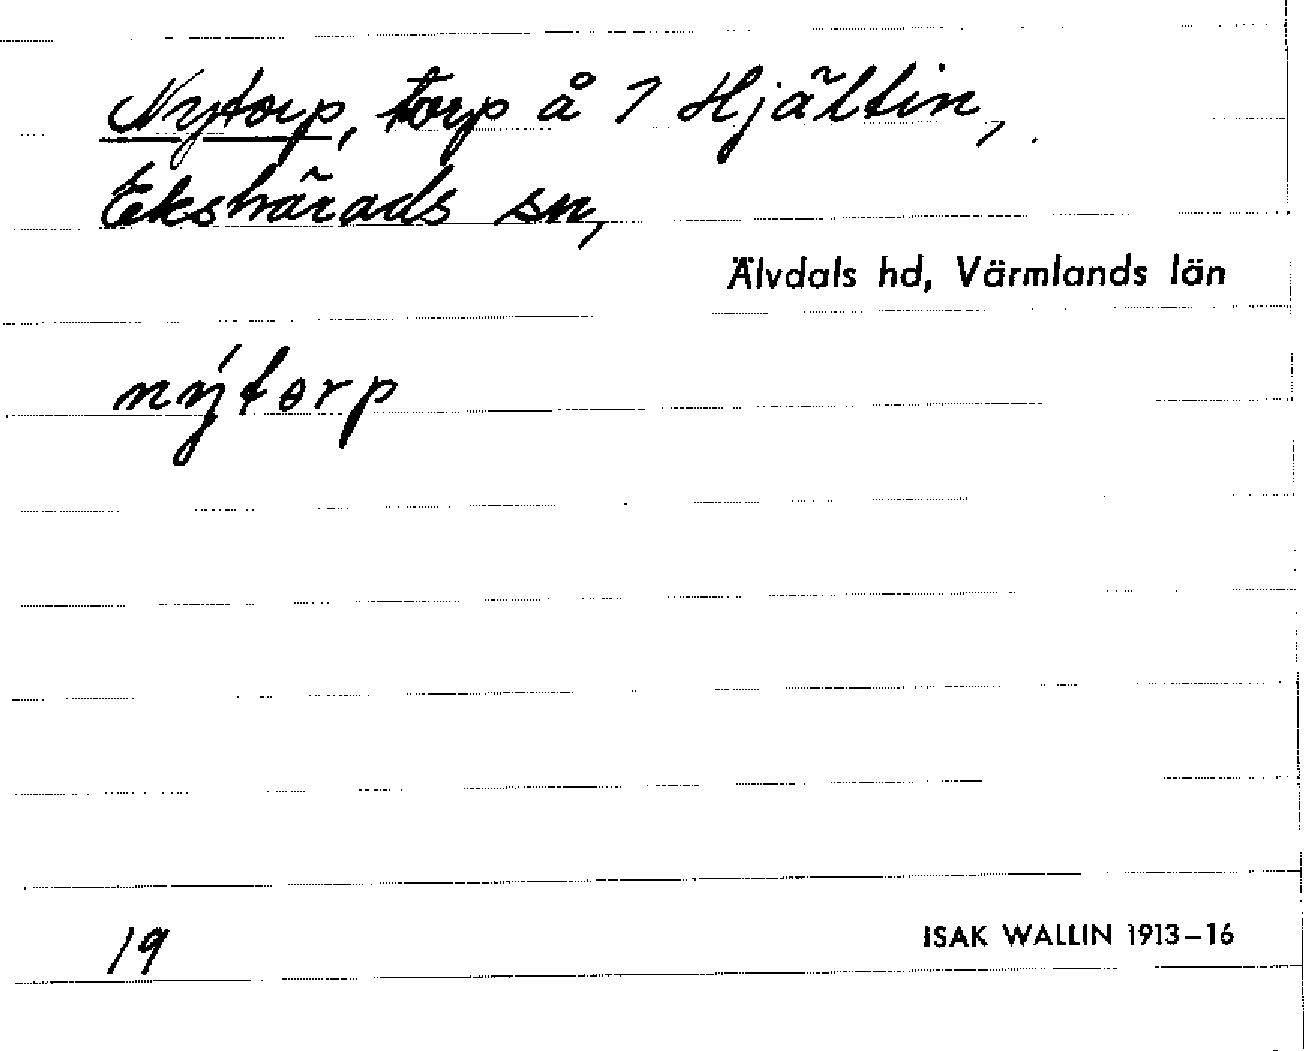 Nytorp, torp å 1 Hjältin,
Ekshärads sn,
Älvdals hd, Värmlands län
nýtorp
19
ISAK WALLIN 1913–16